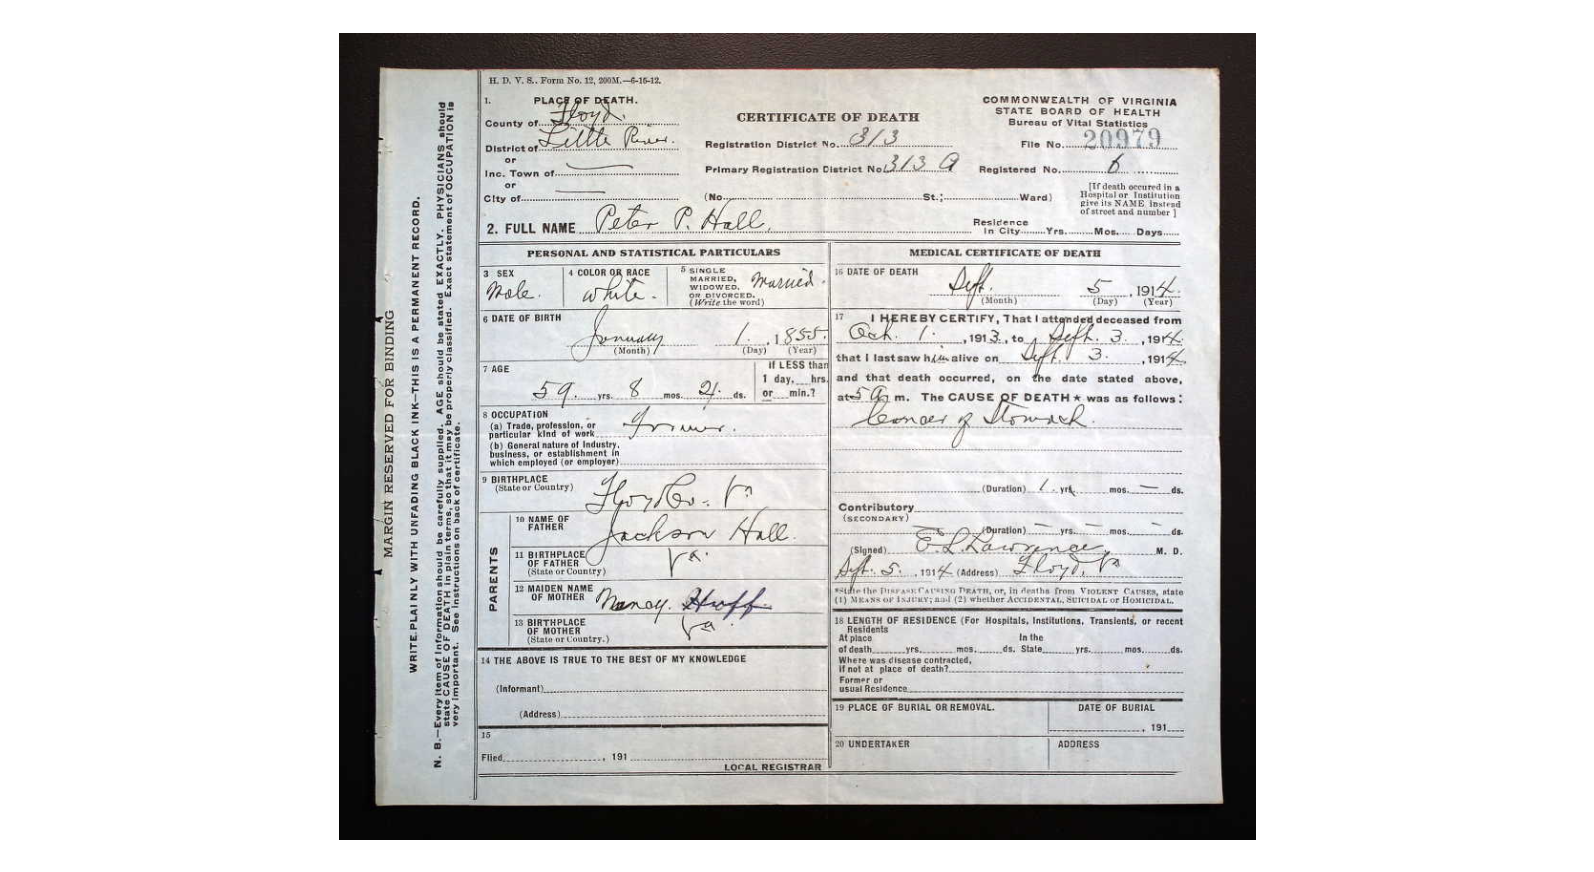 H. D. V. S.. Form No. 12, 200M.—6-15-12.
1. PLACE OF DEATH.
County of Floyd.
District of Little River.
or
Inc. Town of
or
City of
CERTIFICATE OF DEATH
Registration District No. 313
Primary Registration District No. 313 A
(No. St.; Ward)
COMMONWEALTH OF VIRGINIA
STATE BOARD OF HEALTH
Bureau of Vital Statistics
File No. 20979
Registered No. 6
[If death occured in a
Hospital or Institution
give its NAME instead
of street and number]
2. FULL NAME Peter P. Hall.
Residence
In City Yrs. Mos. Days
PERSONAL AND STATISTICAL PARTICULARS
3 SEX
Male.
4 COLOR OR RACE
White.
5 SINGLE
MARRIED,
WIDOWED.
OR DIVORCED.
(Write the word)
Married.
6 DATE OF BIRTH
January 1, 1855.
(Month) (Day) (Year)
7 AGE
59. yrs. 8 mos. ds.
If LESS than
1 day, hrs.
or min.?
8 OCCUPATION
(a) Trade, profession, or
particular kind of work Farmer.
(b) General nature of Industry,
business, or establishment in
which employed (or employer)
9 BIRTHPLACE
(State or Country) Floyd Co. Va
PARENTS
10 NAME OF
FATHER Jackson Hall.
11 BIRTHPLACE
OF FATHER
(State or Country) Va.
12 MAIDEN NAME
OF MOTHER Nancy. Huff
13 BIRTHPLACE
OF MOTHER
(State or Country.) Va.
14 THE ABOVE IS TRUE TO THE BEST OF MY KNOWLEDGE
(Informant)
(Address)
15
Filed , 191
LOCAL REGISTRAR
MEDICAL CERTIFICATE OF DEATH
16 DATE OF DEATH
Sept. 5, 1914.
(Month) (Day) (Year)
17 I HEREBY CERTIFY, That I attended deceased from
Oct. 1. , 1913, to Sept. 3. , 1914
that I last saw him alive on Sept. 3. , 1914
and that death occurred, on the date stated above,
at 5 A. m. The CAUSE OF DEATH★ was as follows:
Cancer of Stomach.
(Duration) 1. yrs. mos. — ds.
Contributory
(SECONDARY)
(Duration) — yrs. — mos. — ds.
(Signed) E. L. Lawrence M. D.
Sept. 5. , 1914 (Address) Floyd, Va
*State the DISEASE CAUSING DEATH, or, in deaths from VIOLENT CAUSES, state
(1) MEANS OF INJURY; and (2) whether ACCIDENTAL, SUICIDAL or HOMICIDAL.
18 LENGTH OF RESIDENCE (For Hospitals, Institutions, Transients, or recent
Residents
At place In the
of death yrs. mos. ds. State yrs. mos. ds.
Where was disease contracted,
if not at place of death?
Former or
usual Residence
19 PLACE OF BURIAL OR REMOVAL.
DATE OF BURIAL
, 191
20 UNDERTAKER
ADDRESS
MARGIN RESERVED FOR BINDING
WRITE PLAINLY WITH UNFADING BLACK INK—THIS IS A PERMANENT RECORD.
N. B.—Every item of information should be carefully supplied. AGE should be stated EXACTLY. PHYSICIANS should
state CAUSE OF DEATH in plain terms, so that it may be properly classified. Exact statement of OCCUPATION is
very important. See instructions on back of certificate.